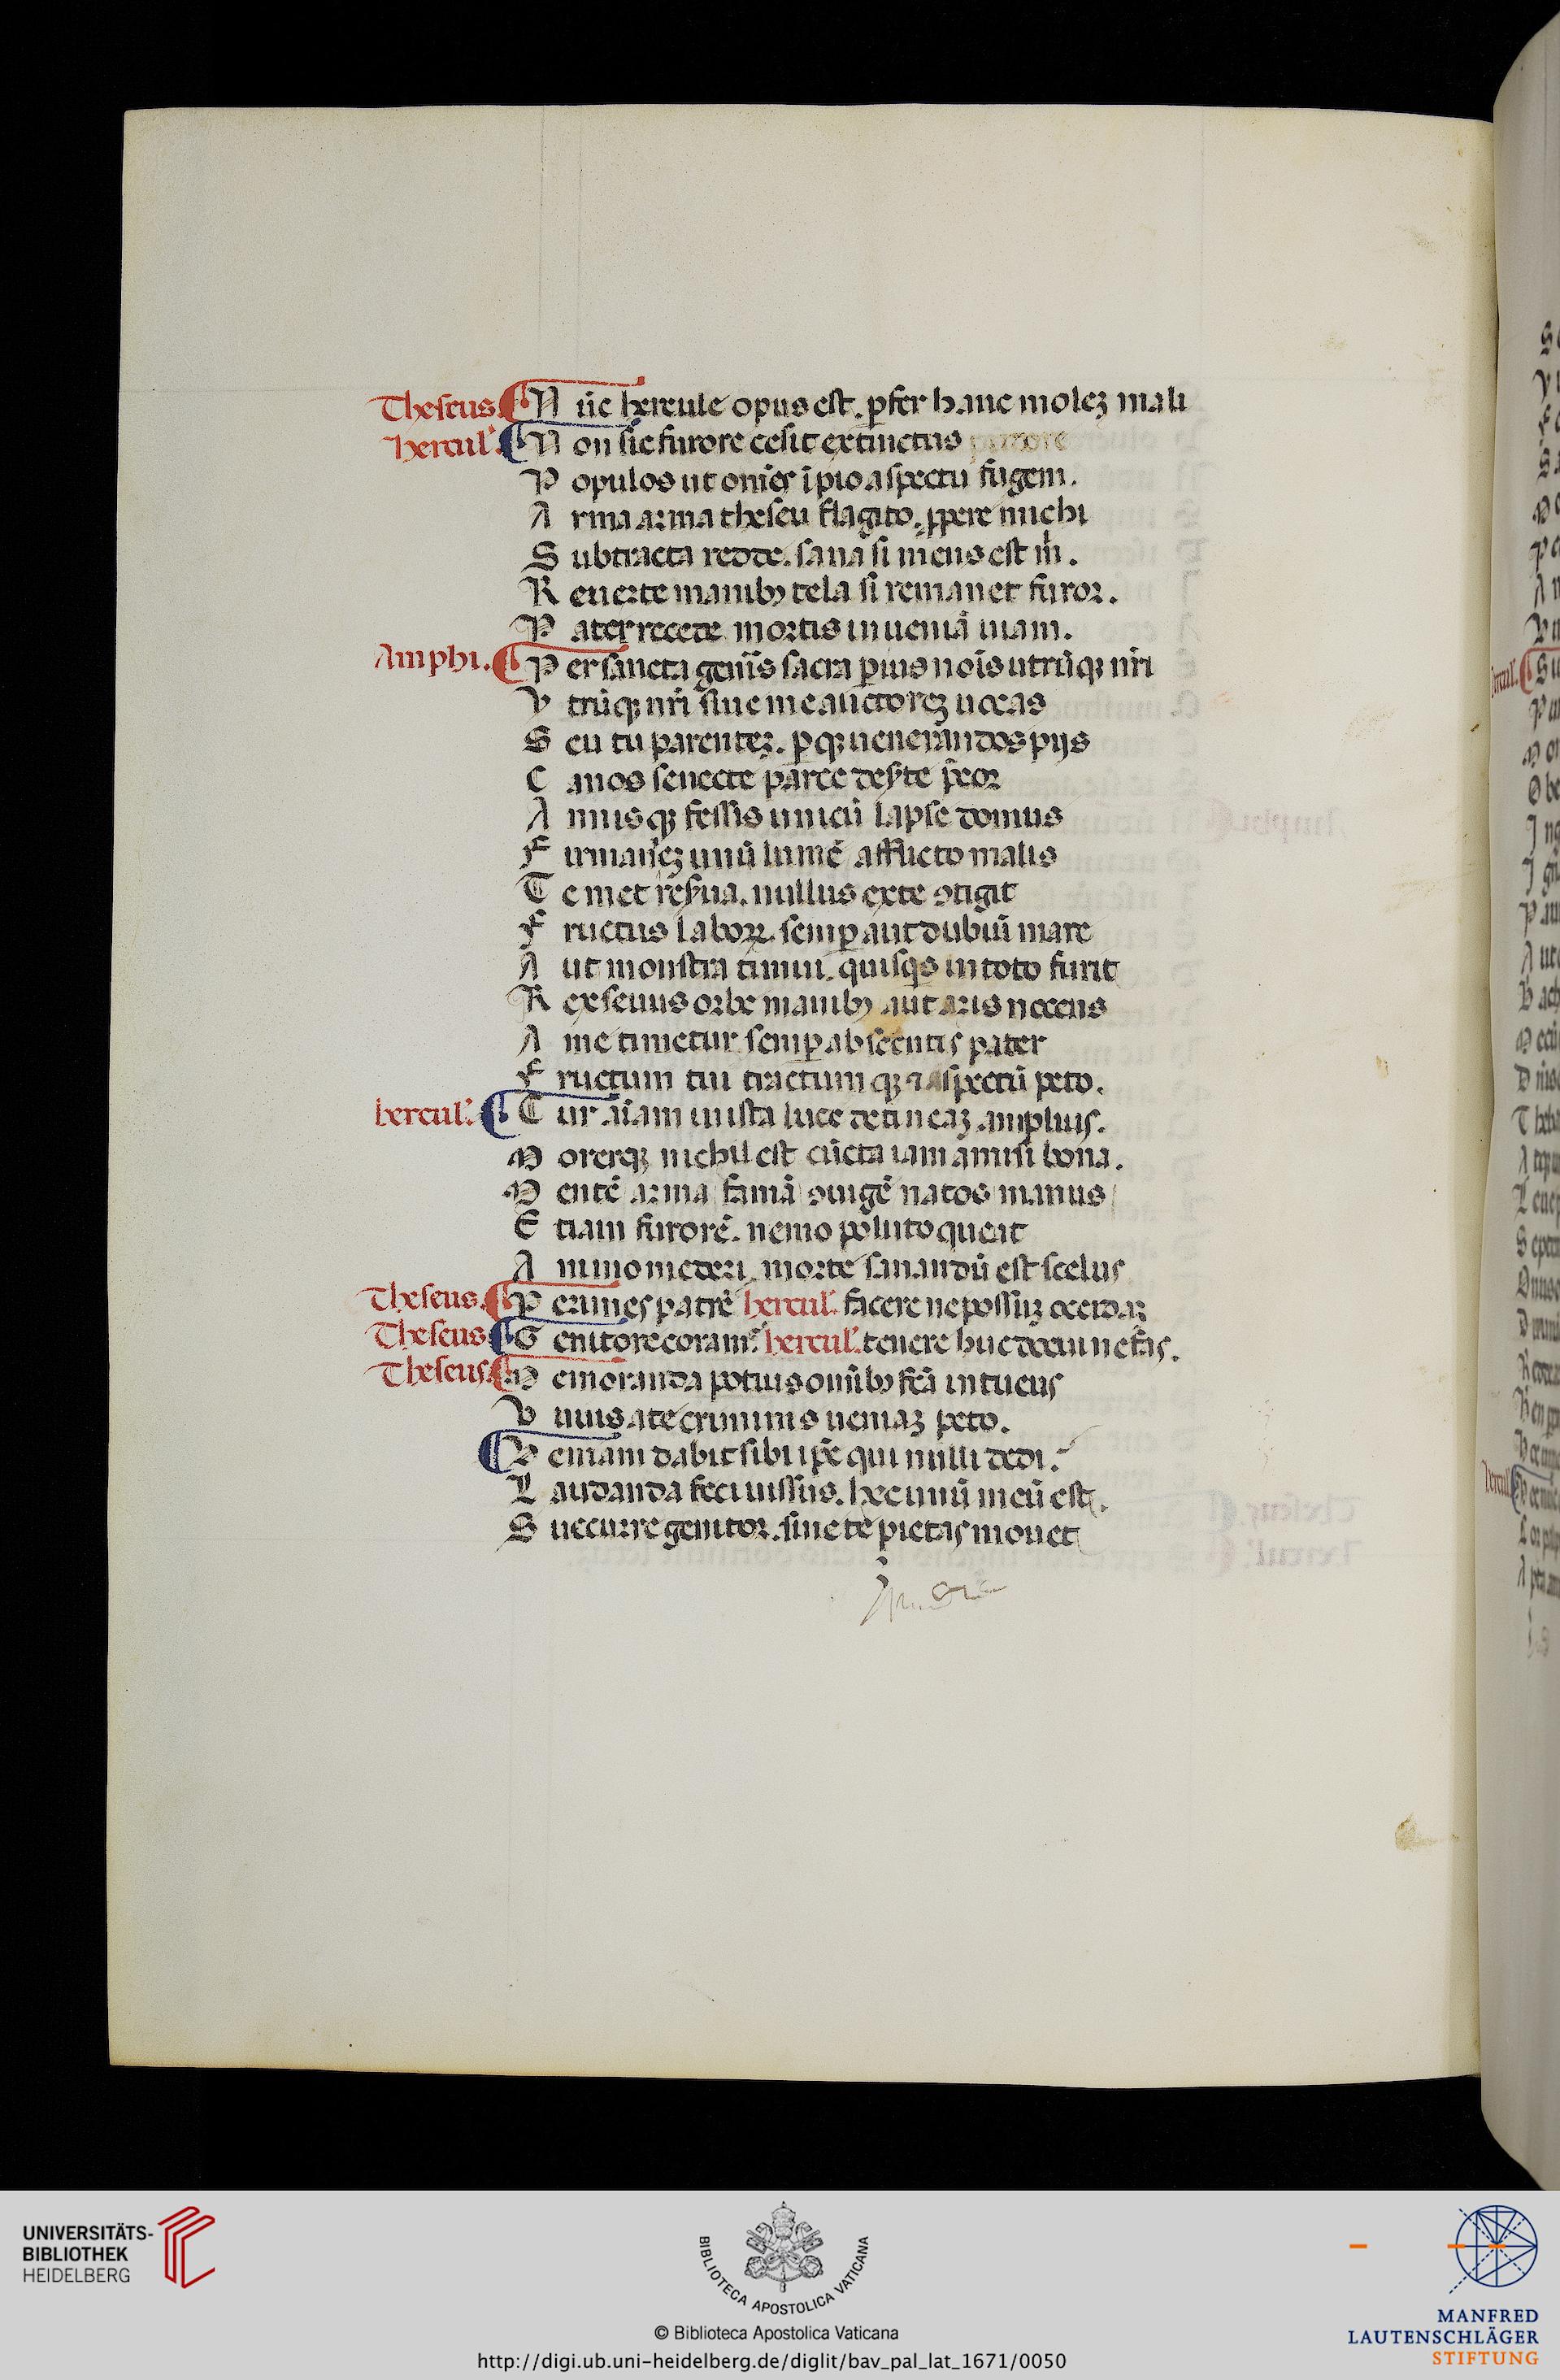 Theseus. N uc hercule opus est. pfer hanc molez mali
hercul'. N on sic furore cesit extinctus pudore
P opulos ut omēs īpio aspectu fugem.
A rma arma theseu flagito. ppere michi
S ubtracta redde. sana si mens est m̄.
R euerte manibꝰ tela si remanet furor.
P ater recede mortis inueniā uiam.
Amphi. P er sancta genīs sacra p ius noīs utrūqꝫ nr̄i
V trūqꝫ nr̄i siue me auctorez uocas
S eu tu parentez. pqꝫ uenerandos pijs
C anos senecte parce deẜte p̄cor
A nnisqꝫ fessis unicū lapse domus
F irmamēz unū lumē afflicto malis
T emet reẜua. nullus ex te ↄtigit
F ructus laboꝝ. semp aut dubiū mare
A ut monstra timui. quisqs in toto furit
R ex seuus orbe manibꝰ aut aris nocens
A me timetur semp absentis pater
F ructum tui tractumqꝫ ⁊ aspectū peto.
hercul'. C ur aīam in ista luce detineaz amplius.
M orerqꝫ nichil est cūcta iam amisi bona.
M entē arma famā ↄiugē natos manus
E tiam furorē. nemo polluto queat
A nimo mederi. morte sanandū est scelus
Theseus. P erimes patrē hercul'. facere ne possiz occidaz
Theseus. G enitore coram. hercul'. tenere hūc docui nefas.
Theseus. M emoranda potius omībꝰ fcā intuens
V nius a te criminis ueniaz peto.
V eniam dabit sibi ip̄e qui nulli dedi.
L audanda feci iussus. hec unū meū est.
S uccurre genitor. siue te pietas mouet
UNIVERSITÄTS-
BIBLIOTHEK
HEIDELBERG
BIBLIOTECA APOSTOLICA VATICANA
© Biblioteca Apostolica Vaticana
http://digi.ub.uni-heidelberg.de/diglit/bav_pal_lat_1671/0050
MANFRED
LAUTENSCHLÄGER
STIFTUNG